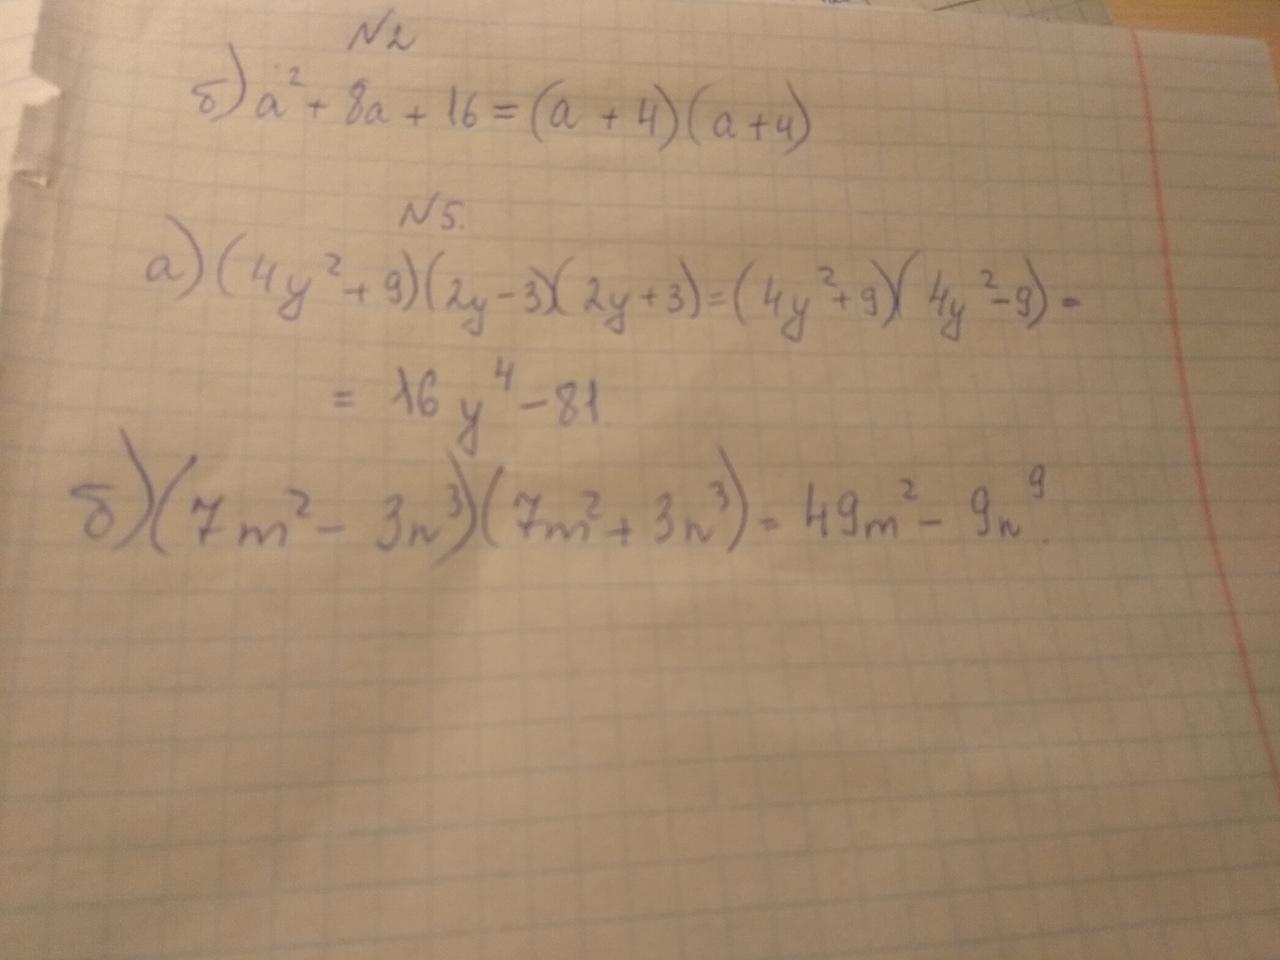 N2
б) a² + 8a + 16 = (a + 4)(a+4)
N5.
а) (4y² + 9)(2y - 3)(2y + 3) = (4y² + 9)(4y² - 9) =
= 16y⁴ - 81.
б) (7m² - 3n³)(7m² + 3n³) = 49m² - 9n⁹.